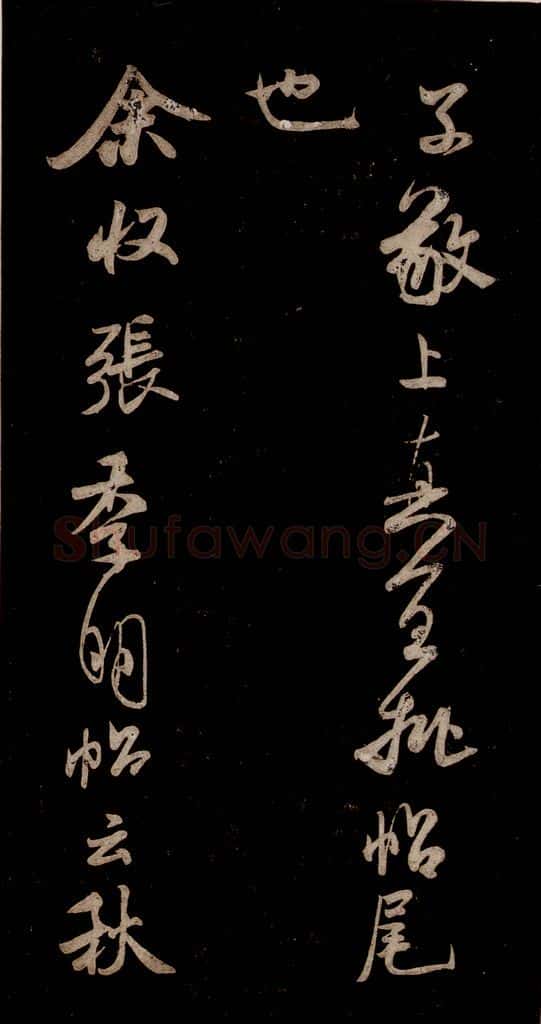 子敬上真宜批帖尾
也
余收張季明帖云秋
Shufawang.CN